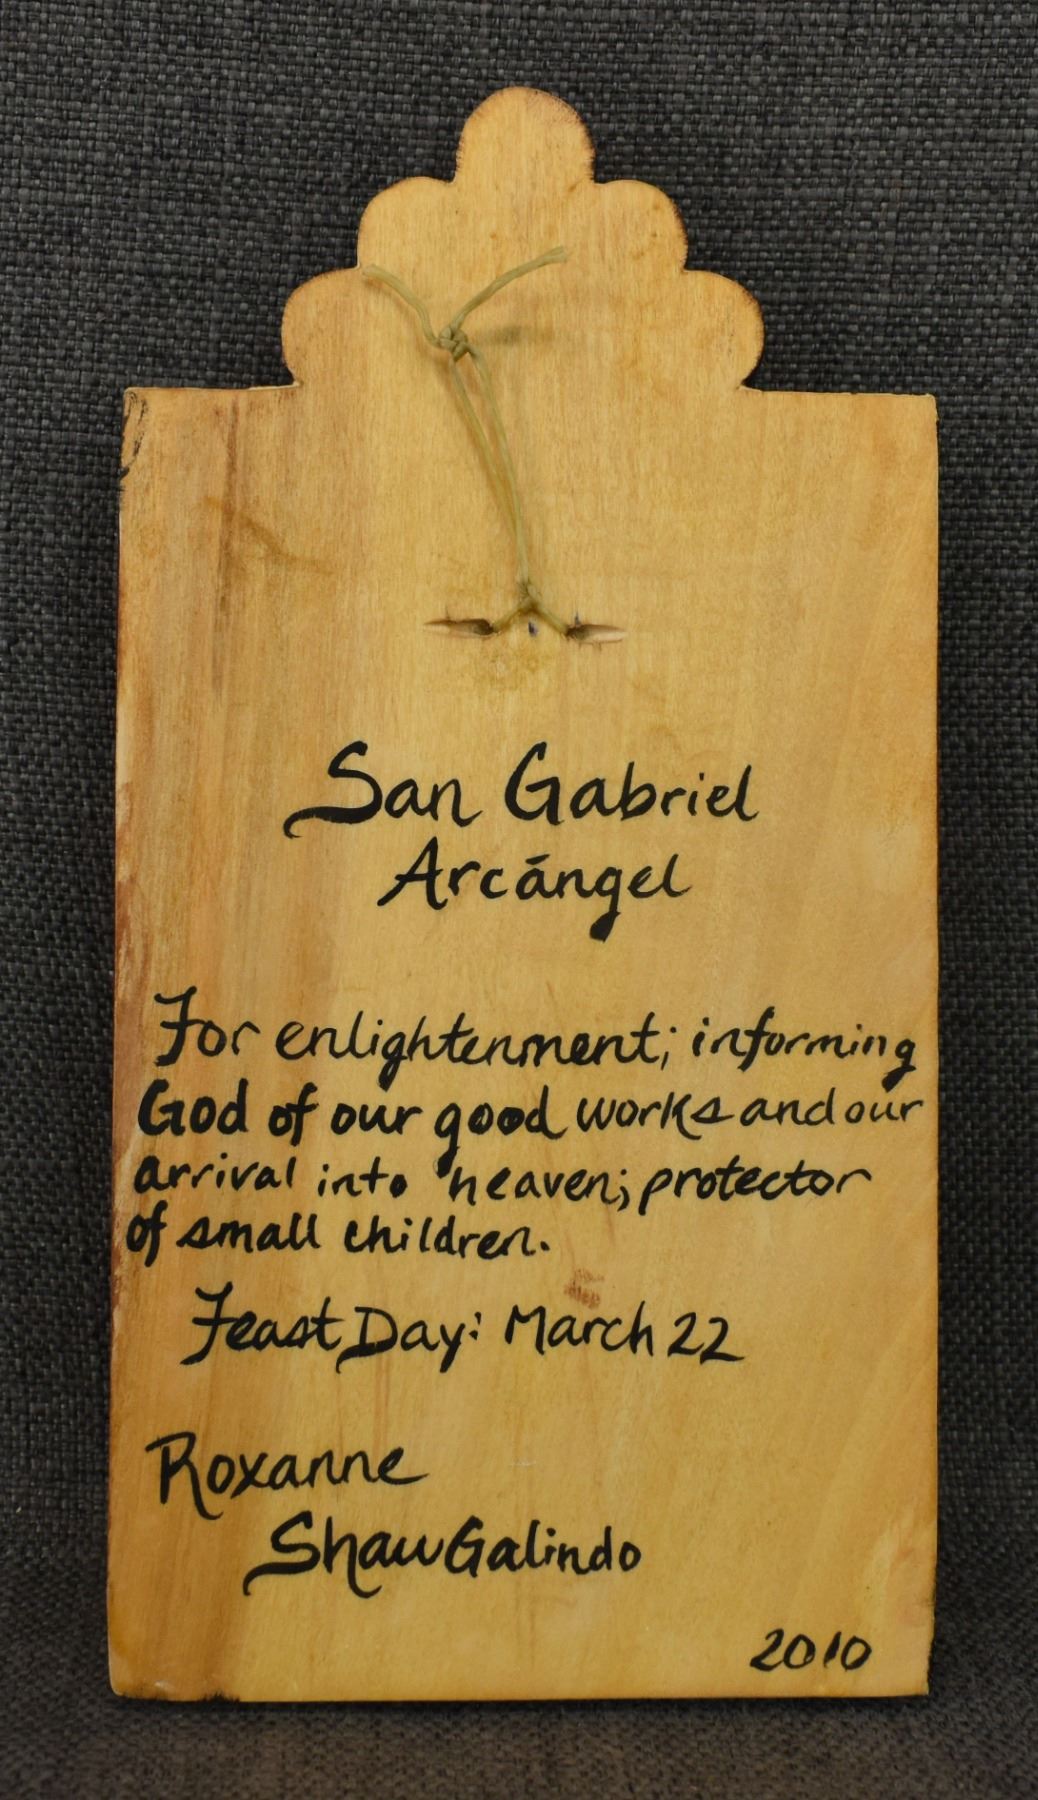 San Gabriel
Arcángel
For enlightenment; informing
God of our good works and our
arrival into heaven; protector
of small children.
Feast Day: March 22
Roxanne
Shaw Galindo
2010